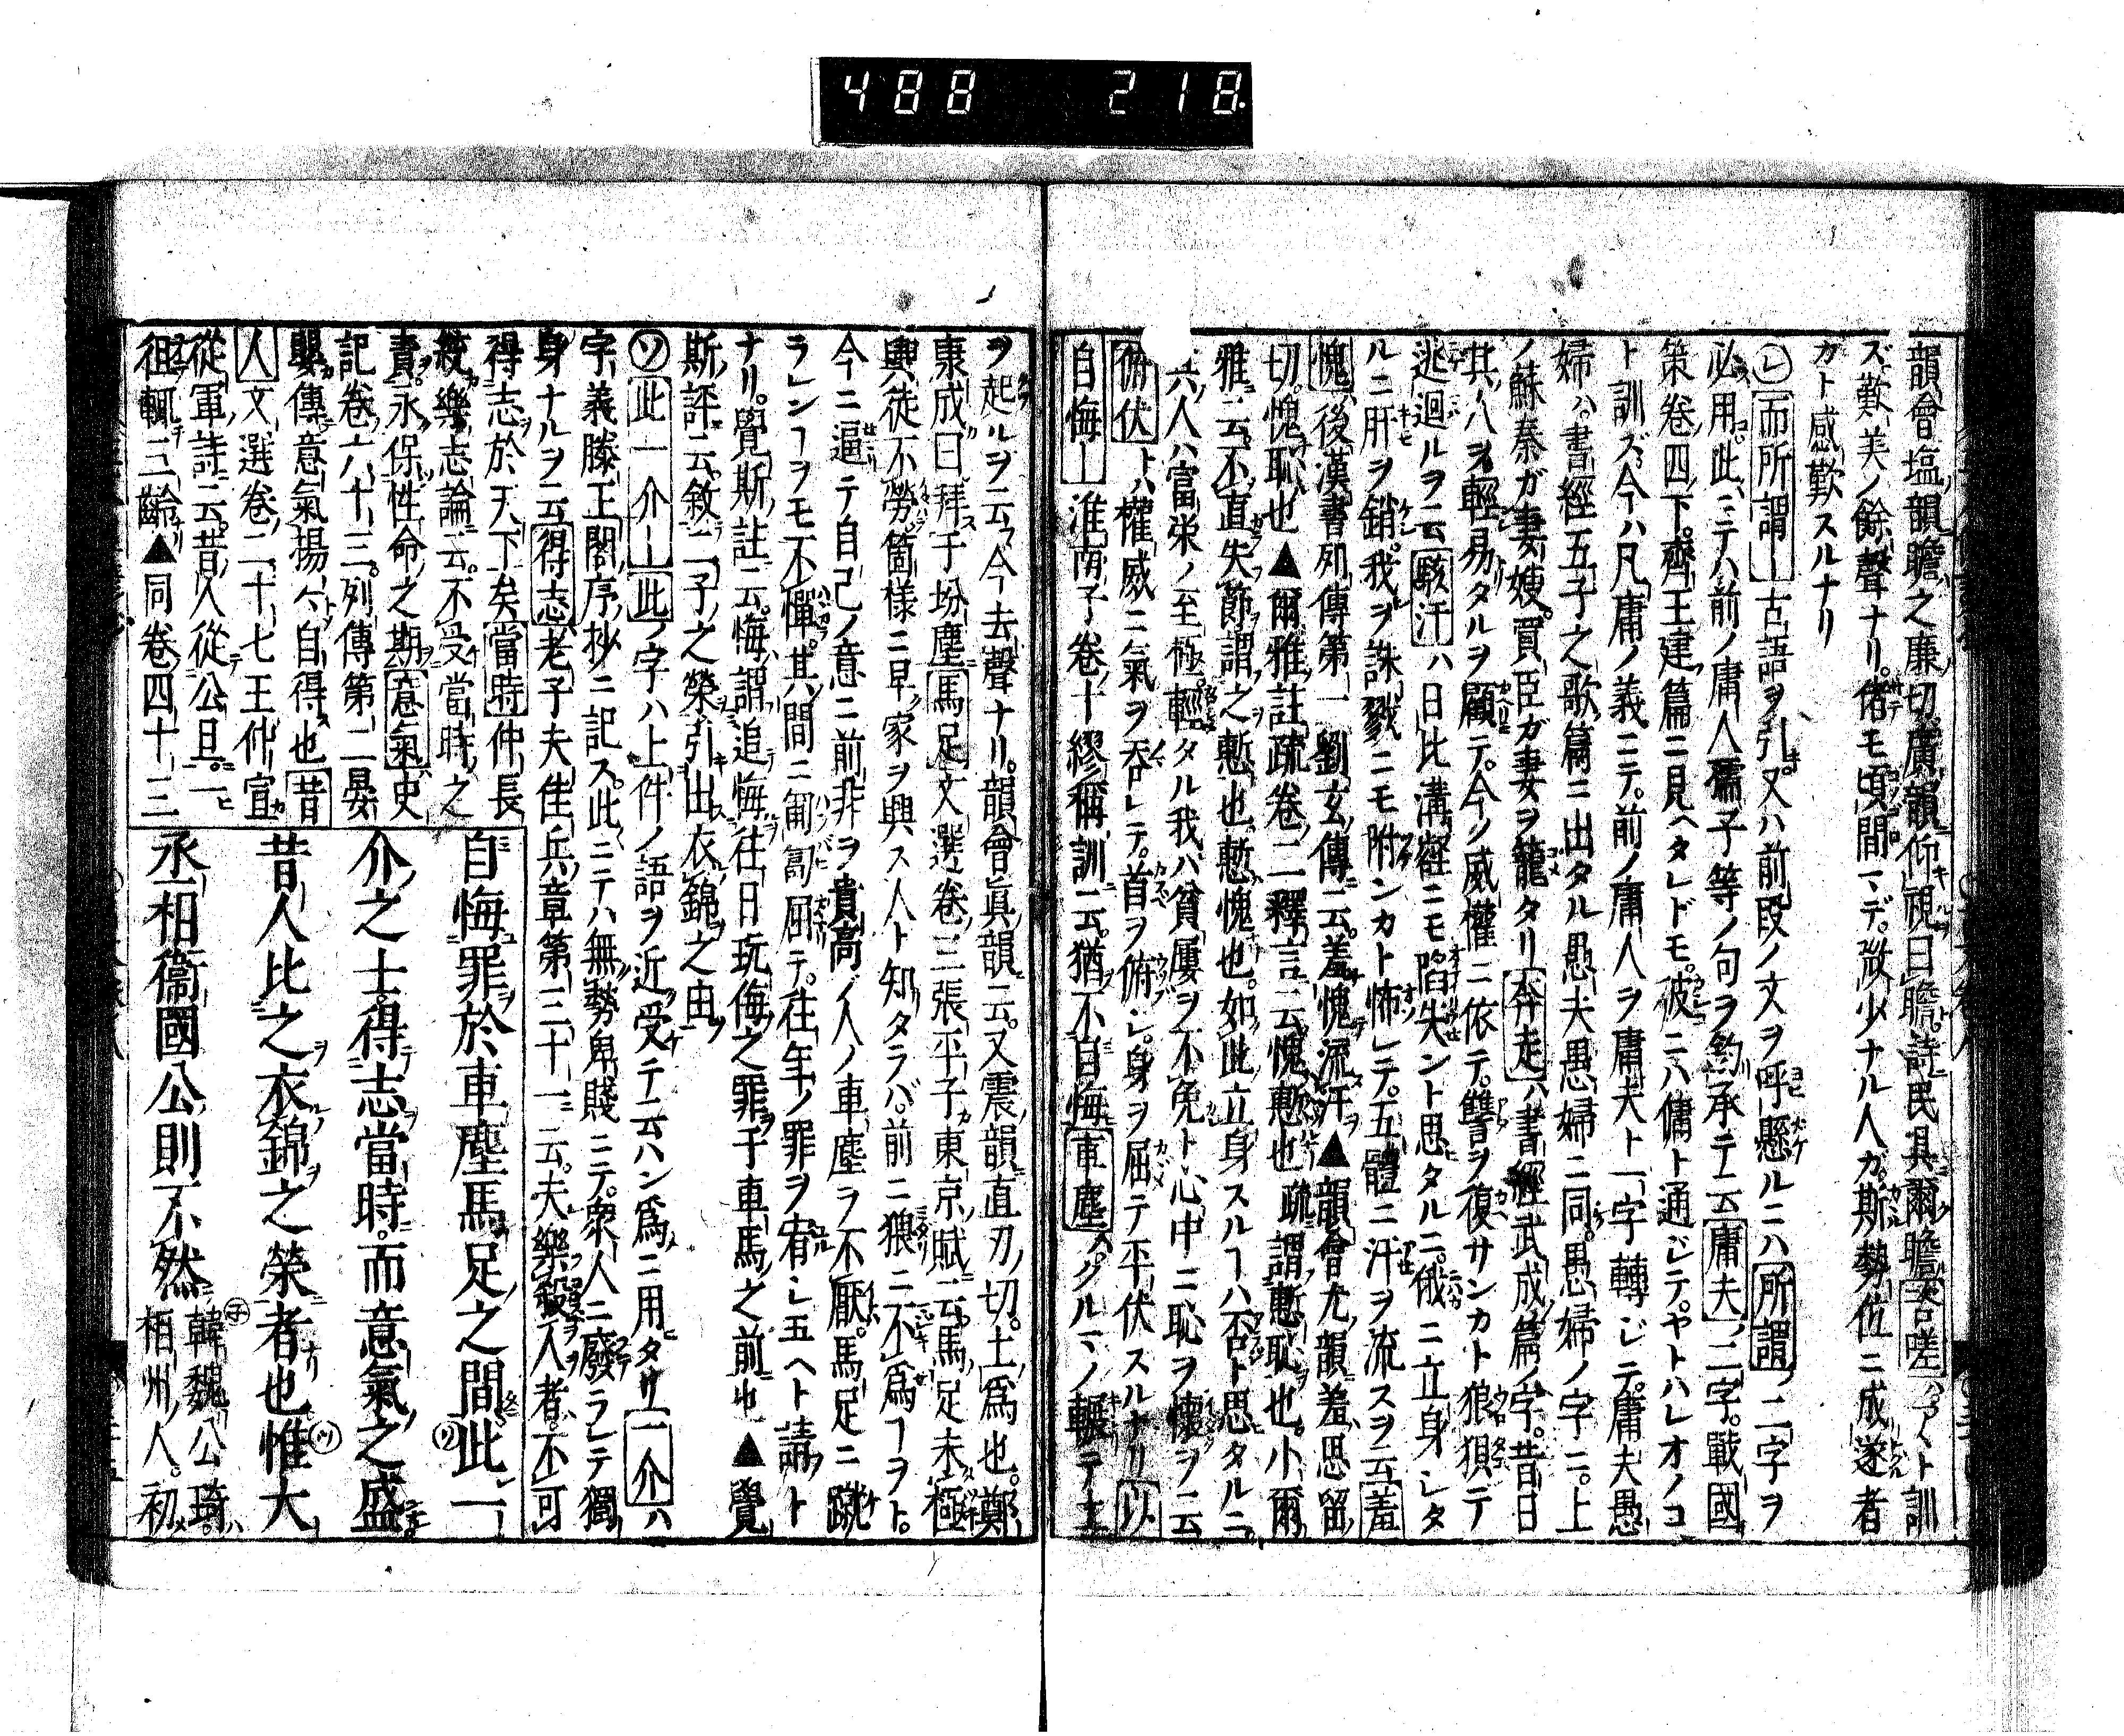 488 218
韻會塩韻瞻之廉切廣韻仰視曰瞻詩民具爾瞻咨嗟ハアヽト訓
ズ歎美ノ餘聲ナリ偖モ頃間マデ微少ナル人カ斯勢位ニ成遂者
カト感歎スルナリ
レ而所謂—古語ヲ引又ハ前段ノ文ヲ呼懸ルニハ所謂ノ二字ヲ
必用此ニテハ前ノ庸人孺子等ノ句ヲ鈎承テ云庸夫ノ二字戰國
策卷四下齊王建篇ニ見ヘタレドモ彼ニハ傭ト通ジテヤトハレオノコ
ト訓ズ今ハ凡庸ノ義ニテ前ノ庸人ヲ庸夫ト一字轉ジテ庸夫愚
婦ハ書經五子之歌篇ニ出タル愚夫愚婦ニ同愚婦ノ字ニ上
ノ蘇秦ガ妻嫂買臣ガ妻ヲ籠タリ奔走ハ書經武成篇ノ字昔日
其人ヲ輕易タルヲ顧テ今ノ威權ニ依テ讐ヲ復サンカト狼狽テ
逃迴ルヲ云駭汗ハ日比溝壑ニモ陷失ント思タルニ俄ニ立身レタ
ルニ肝ヲ銷我ヲ誅戮ニモ附ンカト怖レテ五體ニ汗ヲ流スヲ云羞
愧後漢書列傳第一劉玄傳云羞愧流汗▲韻會尤韻羞思留
切愧恥也▲爾雅註疏卷二釋言云愧慙也疏謂慙恥也小爾
雅云不直失節謂之慙也慙愧也如此立身スルヿハ否ト思タルニ
其人ハ富栄ノ至極輕タル我バ貧屢ヲ不免ト心中ニ恥ヲ懐ヲ云
俯伏トハ權威ニ氣ヲ呑レテ首ヲ俯レ身ヲ屈テ平伏スルナリ以
自悔—淮南子卷十繆稱訓云猶不自悔車塵ハクルマノ輾テ土
ヲ起ルヲ云今去聲ナリ韻會眞韻云又震韻直刃切土爲也鄭
康成曰拜于坋塵馬足文選卷三張平子東京賦云馬足未極
輿徒不勞箇様ニ早家ヲ興ス人ト知タラバ前ニ狼ニ不爲ヿヲト
今ニ逼テ自己ノ意ニ前非ヲ貴高ノ人ノ車塵ヲ不厭馬足ニ蹴
ランヿヲモ不憚其間ニ匍匐屈テ往年ノ罪ヲ宥レ玉ヘト請ト
ナリ覺斯註云悔謂追悔往日玩侮之罪于車馬之前也▲覺
斯評云敘二子之榮引出衣錦之由
ソ此一介—此ノ字ハ上件ノ語ヲ近受テ云ハン爲ニ用タリ一介ハ
字義滕王閣序抄ニ記ス此ニテハ無勢卑賤ニテ衆人ニ廢ラレテ獨
身ナルヲ云得志老子夫佳兵章第三十一云夫樂殺人者不可
得志於天下矣當時仲長
統樂志論云不受當時之
責永保性命之期意氣史
記卷六十三列傳第二晏
嬰傳意氣揚々自得也昔
人文選卷二十七王仲宣カ
從軍詩云昔人從公旦一
徂輒三齡▲同卷四十三
自悔罪於車塵馬足之間此一
介之士得志當時而意氣之盛
昔人比之衣錦之榮者也惟大
丞相衞國公則不然韓魏公琦ハ
相州人初